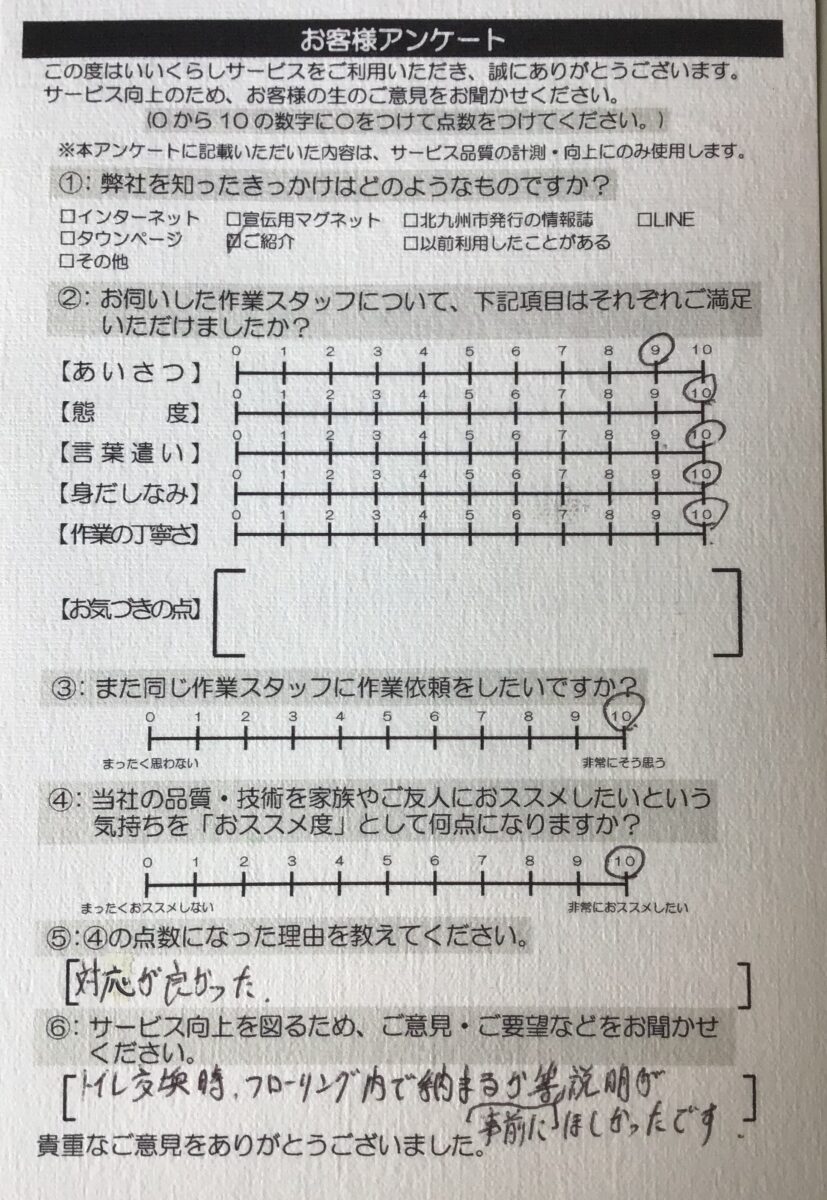 お客様アンケート
この度はいいくらしサービスをご利用いただき、誠にありがとうございます。
サービス向上のため、お客様の生のご意見をお聞かせください。
(0から10の数字に○をつけて点数をつけてください。)
※本アンケートに記載いただいた内容は、サービス品質の計測・向上にのみ使用します。
①:弊社を知ったきっかけはどのようなものですか?
□インターネット □宣伝用マグネット □北九州市発行の情報誌 □LINE
□タウンページ ☑ご紹介 □以前利用したことがある
□その他
②:お伺いした作業スタッフについて、下記項目はそれぞれご満足
いただけましたか?
0 1 2 3 4 5 6 7 8 9 10
【あいさつ】
0 1 2 3 4 5 6 7 8 9 10
【態度】
0 1 2 3 4 5 6 7 8 9 10
【言葉遣い】
0 1 2 3 4 5 6 7 8 9 10
【身だしなみ】
0 1 2 3 4 5 6 7 8 9 10
【作業の丁寧さ】
【お気づきの点】
③:また同じ作業スタッフに作業依頼をしたいですか?
0 1 2 3 4 5 6 7 8 9 10
まったく思わない 非常にそう思う
④:当社の品質・技術を家族やご友人におススメしたいという
気持ちを「おススメ度」として何点になりますか?
0 1 2 3 4 5 6 7 8 9 10
まったくおススメしない 非常におススメしたい
⑤:④の点数になった理由を教えてください。
対応が良かった.
⑥:サービス向上を図るため、ご意見・ご要望などをお聞かせ
ください。
トイレ交換時、フローリング内で納まるか等説明が
事前にほしかったです.
貴重なご意見をありがとうございました。